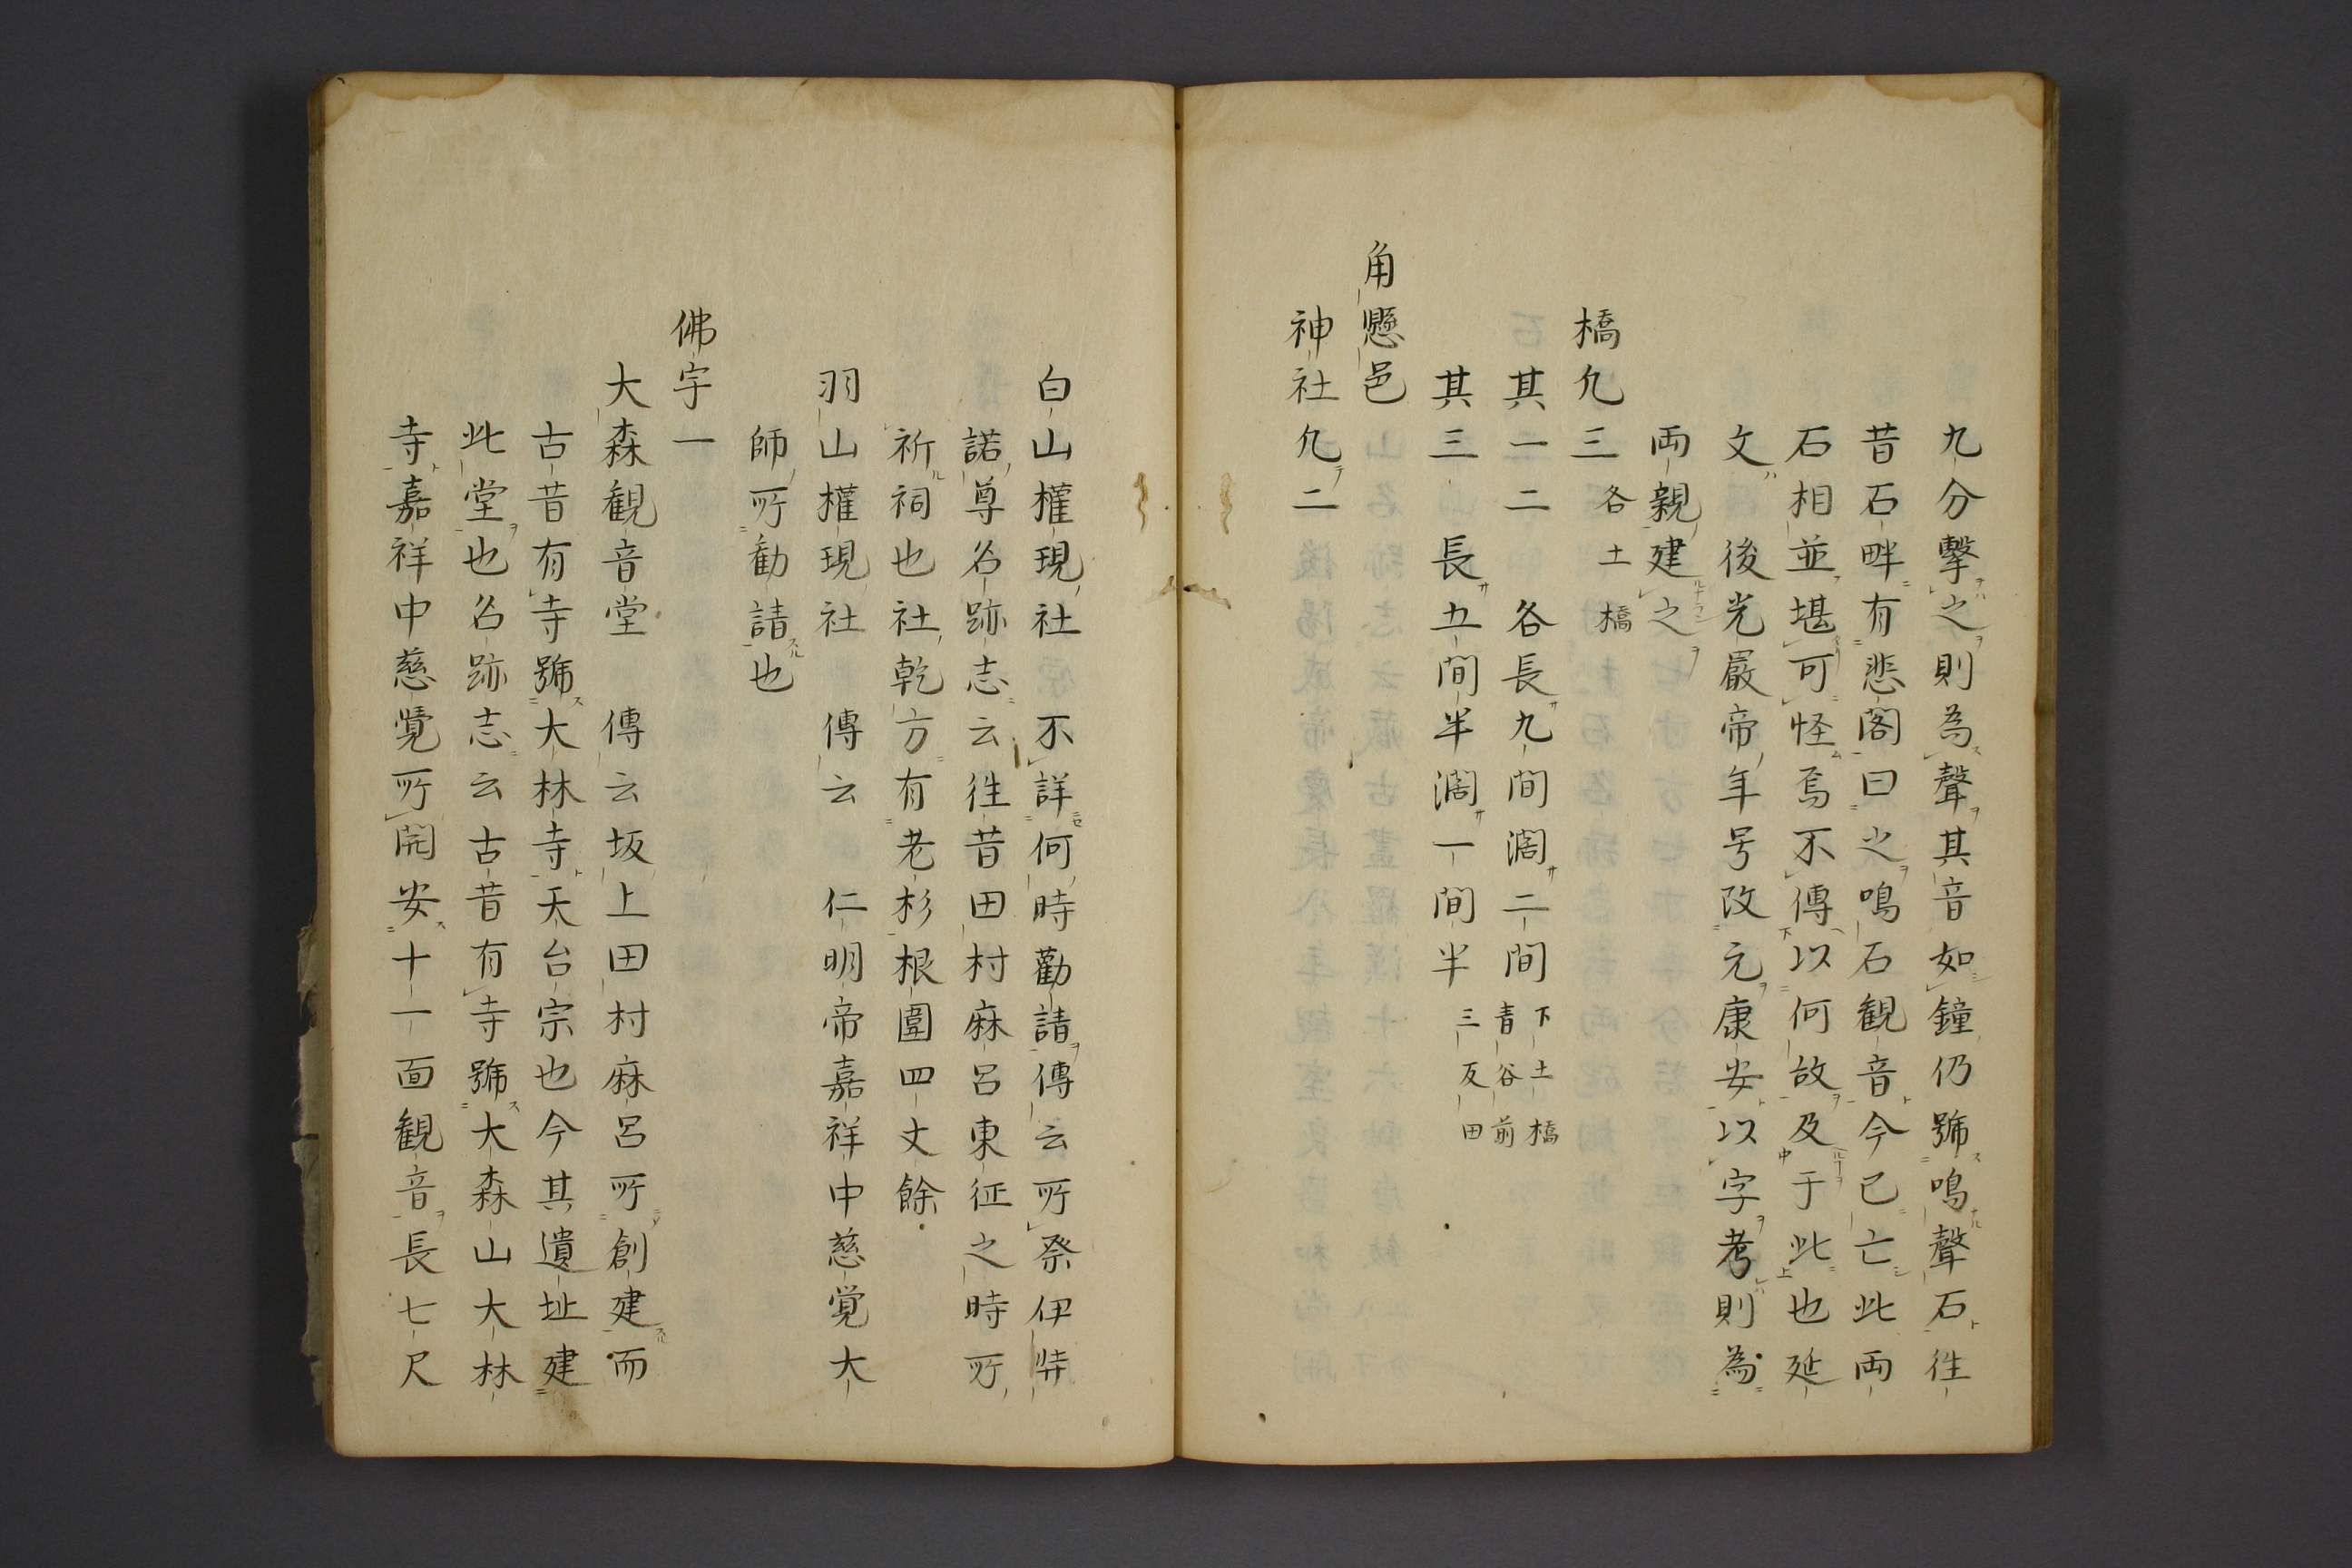 九分撃之則為聲其音如鐘仍號鳴聲石徃
昔石畔有悲閣曰之鳴石観音今已亡此両
石相並堪可怪焉不傳以何故及于此也延
文後光嚴帝年号改元康安以字考則為
両親建之
橋凢三 各土橋
其一二 各長九間濶二間 下土橋 青谷前
其三 長五間半濶一間半 三反田
角懸邑
神社凢二
白山權現社 不詳何時勸請傳云所祭伊弉
諾尊名跡志云徃昔田村麻呂東征之時所
祈祠也社乾方有老杉根圍四丈餘
羽山權現社 傳云 仁明帝嘉祥中慈覚大
師所勧請也
佛宇一
大森観音堂 傳云坂上田村麻呂所創建而
古昔有寺號大林寺天台宗也今其遺址建
此堂也名跡志云古昔有寺號大森山大林
寺嘉祥中慈覺所開安十一面観音長七尺